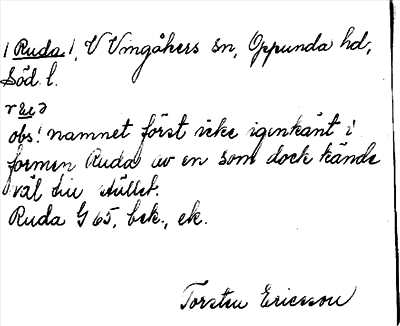 ! Ruda !, V Vingåkers sn, Oppunda hd,
Söd. l.
obs! namnet först icke igenkänt i
formen Ruda av en som dock kände
väl till stället.
Ruda G 65, bek., ek.
Torsten Ericsson